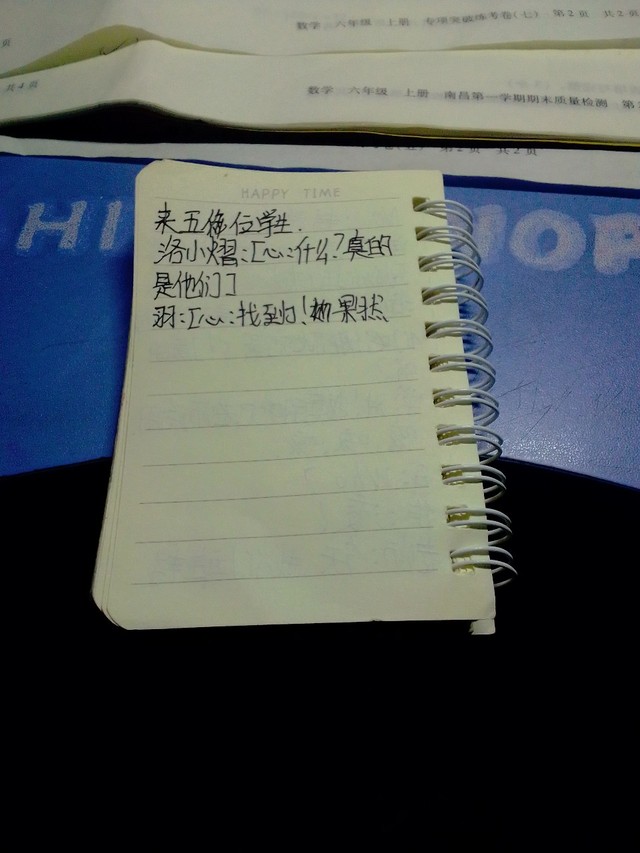 数学 六年级 上册 专项突破练考卷(七) 第2页 共2页
页
共4页
数学 六年级 上册 南昌第一学期期末质量检测 第
第2页 共2页
HAPPY TIME
来五位学生.
洛小熠:[心:什么?真的
是他们]
羽:[心:找到!果然